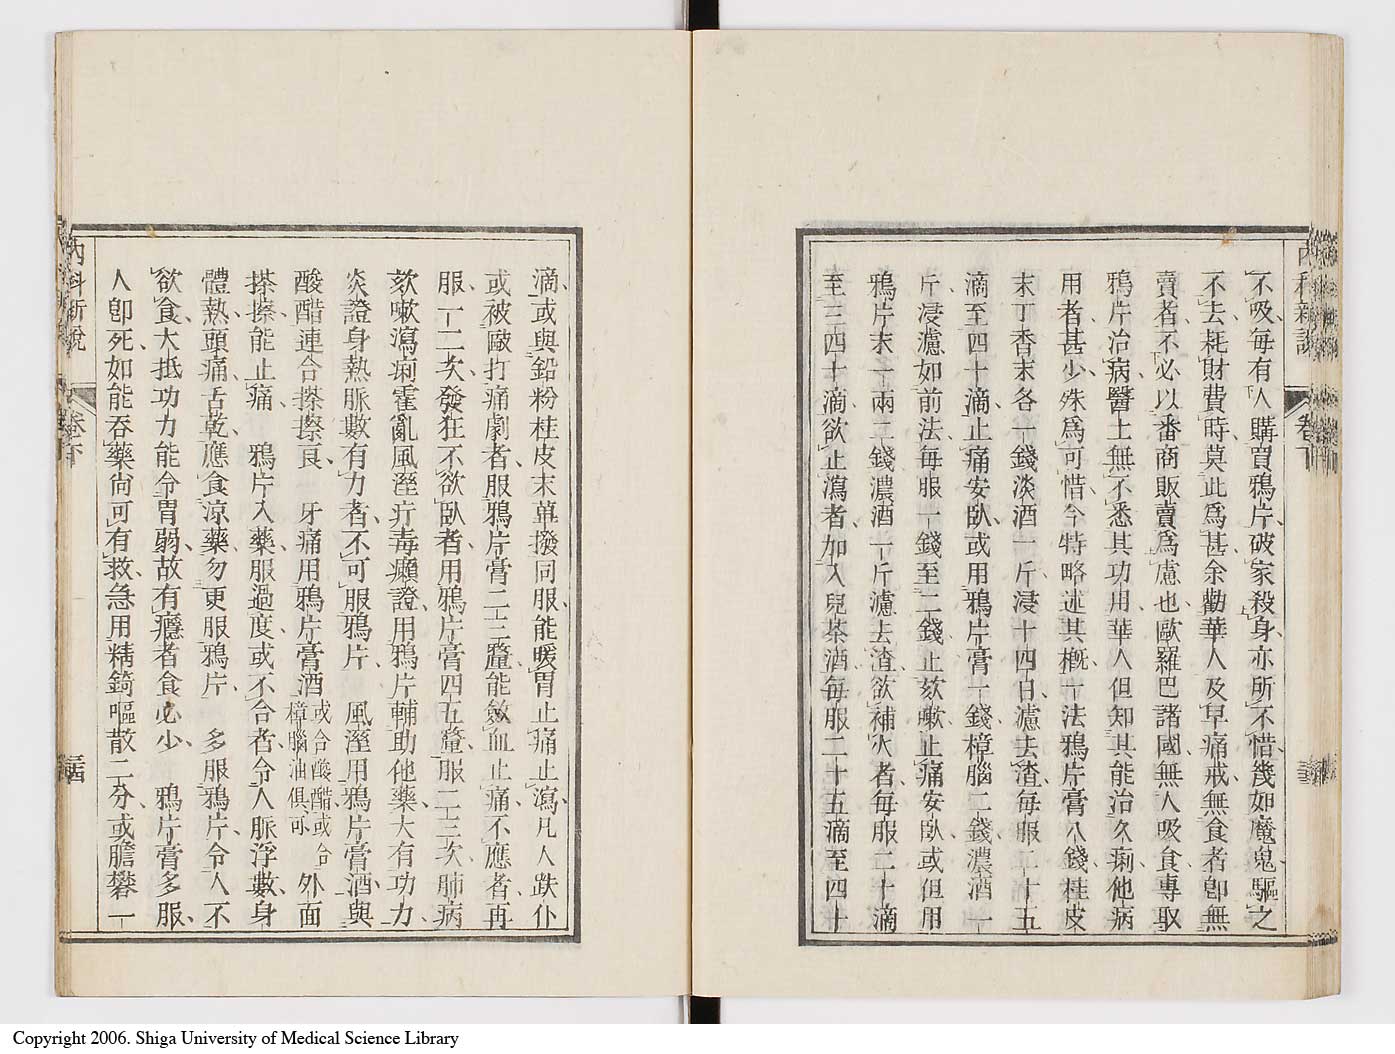 內科新說 卷下
不吸每有人購買鴉片破家殺身亦所不惜幾如魔鬼驅之
不去耗財費時莫此為甚余勸華人及早痛戒無食者卽無
賣者不必以番商販賣為慮也歐羅巴諸國無人吸食專取
鴉片治病醫士無不悉其功用華人但知其能治久痢他病
用者甚少殊為可惜今特略述其概一法鴉片膏八錢桂皮
末丁香末各一錢淡酒一斤浸十四日濾去渣每服二十五
滴至四十滴止痛安臥或用鴉片膏一錢樟腦二錢濃酒一
斤浸濾如前法每服一錢至二錢止欬嗽止痛安臥或但用
鴉片末一兩二錢濃酒一斤濾去渣欲補火者每服二十滴
至三四十滴欲止瀉者加入兒茶酒每服二十五滴至四十
滴或與鉛粉桂皮末蓽撥同服能暖胃止痛止瀉凡人跌仆
或被毆打痛劇者服鴉片膏二三釐能斂血止痛不應者再
服一二次發狂不欲臥者用鴉片膏四五釐服二三次肺病
欬嗽瀉痢霍亂風溼疔毒癲證用鴉片輔助他藥大有功力
炎證身熱脈數有力者不可服鴉片 風溼用鴉片膏酒與
酸醋連合搽擦良 牙痛用鴉片膏酒或合酸醋或合樟腦油俱可 外面
搽擦能止痛 鴉片入藥服過度或不合者令人脈浮數身
體熱頭痛舌乾應食涼藥勿更服鴉片 多服鴉片令人不
欲食大抵功力能令胃弱故有癮者食必少 鴉片膏多服
人卽死如能吞藥尙可有救急用精錡嘔散二分或膽礬一
內科新說 卷下
Copyright 2006. Shiga University of Medical Science Library